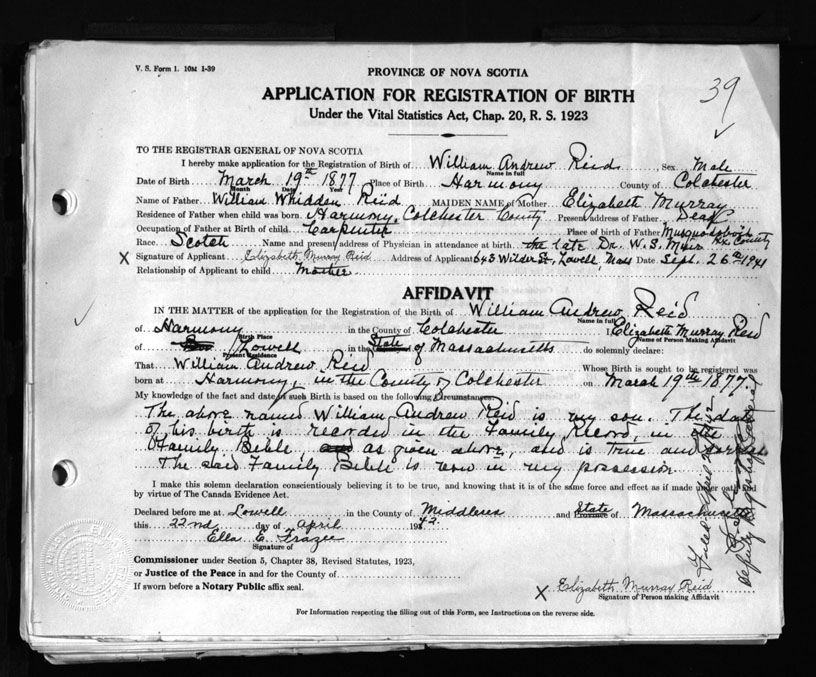 V. S. Form 1. 10M 1-39
39
PROVINCE OF NOVA SCOTIA
APPLICATION FOR REGISTRATION OF BIRTH
Under the Vital Statistics Act, Chap. 20, R. S. 1923
TO THE REGISTRAR GENERAL OF NOVA SCOTIA
I hereby make application for the Registration of Birth of William Andrew Reid, Sex Male
Name in full
Date of Birth March 19th 1877 Place of Birth Harmony County of Colchester
Month Date Year
Name of Father William Whidden Reid MAIDEN NAME of Mother Elizabeth Murray
Residence of Father when child was born Harmony, Colchester County Present address of Father Dead
Occupation of Father at Birth of child Carpenter Place of birth of Father Musquodoboit
Hx County
Race Scotch Name and present address of Physician in attendance at birth the late Dr. W. S. Muir
X Signature of Applicant Elizabeth Murray Reid Address of Applicant 643 Wilder St, Lowell, Mass Date Sept. 26th 1941
Relationship of Applicant to child Mother
AFFIDAVIT
IN THE MATTER of the application for the Registration of the Birth of William Andrew Reid
Name in full
of Harmony in the County of Colchester, Elizabeth Murray Reid
Birth Place Name of Person Making Affidavit
of Lowell in the State of Massachusetts do solemnly declare:
Present Residence
That William Andrew Reid Whose Birth is sought to be registered was
born at Harmony, in the County of Colchester on March 19th 1877.
My knowledge of the fact and date of such Birth is based on the following Circumstances:
The above named William Andrew Reid is my son. The date
of his birth is recorded in the Family Record, in the
Family Bible, as given above, and is true and correct
The said Family Bible is now in my possession
I make this solemn declaration conscientiously believing it to be true, and knowing that it is of the same force and effect as if made under oath and
by virtue of The Canada Evidence Act.
Declared before me at Lowell in the County of Middlesex and State Province of Massachusetts
this 22nd day of April 1942.
Ella E. Frazee
Signature of
Commissioner under Section 5, Chapter 38, Revised Statutes, 1923,
or Justice of the Peace in and for the County of
If sworn before a Notary Public affix seal.
X Elizabeth Murray Reid
Signature of Person making Affidavit
For Information respecting the filling out of this Form, see Instructions on the reverse side.
Filed April
Deputy Registrar General